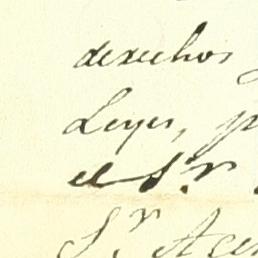 derechos
Leyes, p
el S.r
S.r Ace